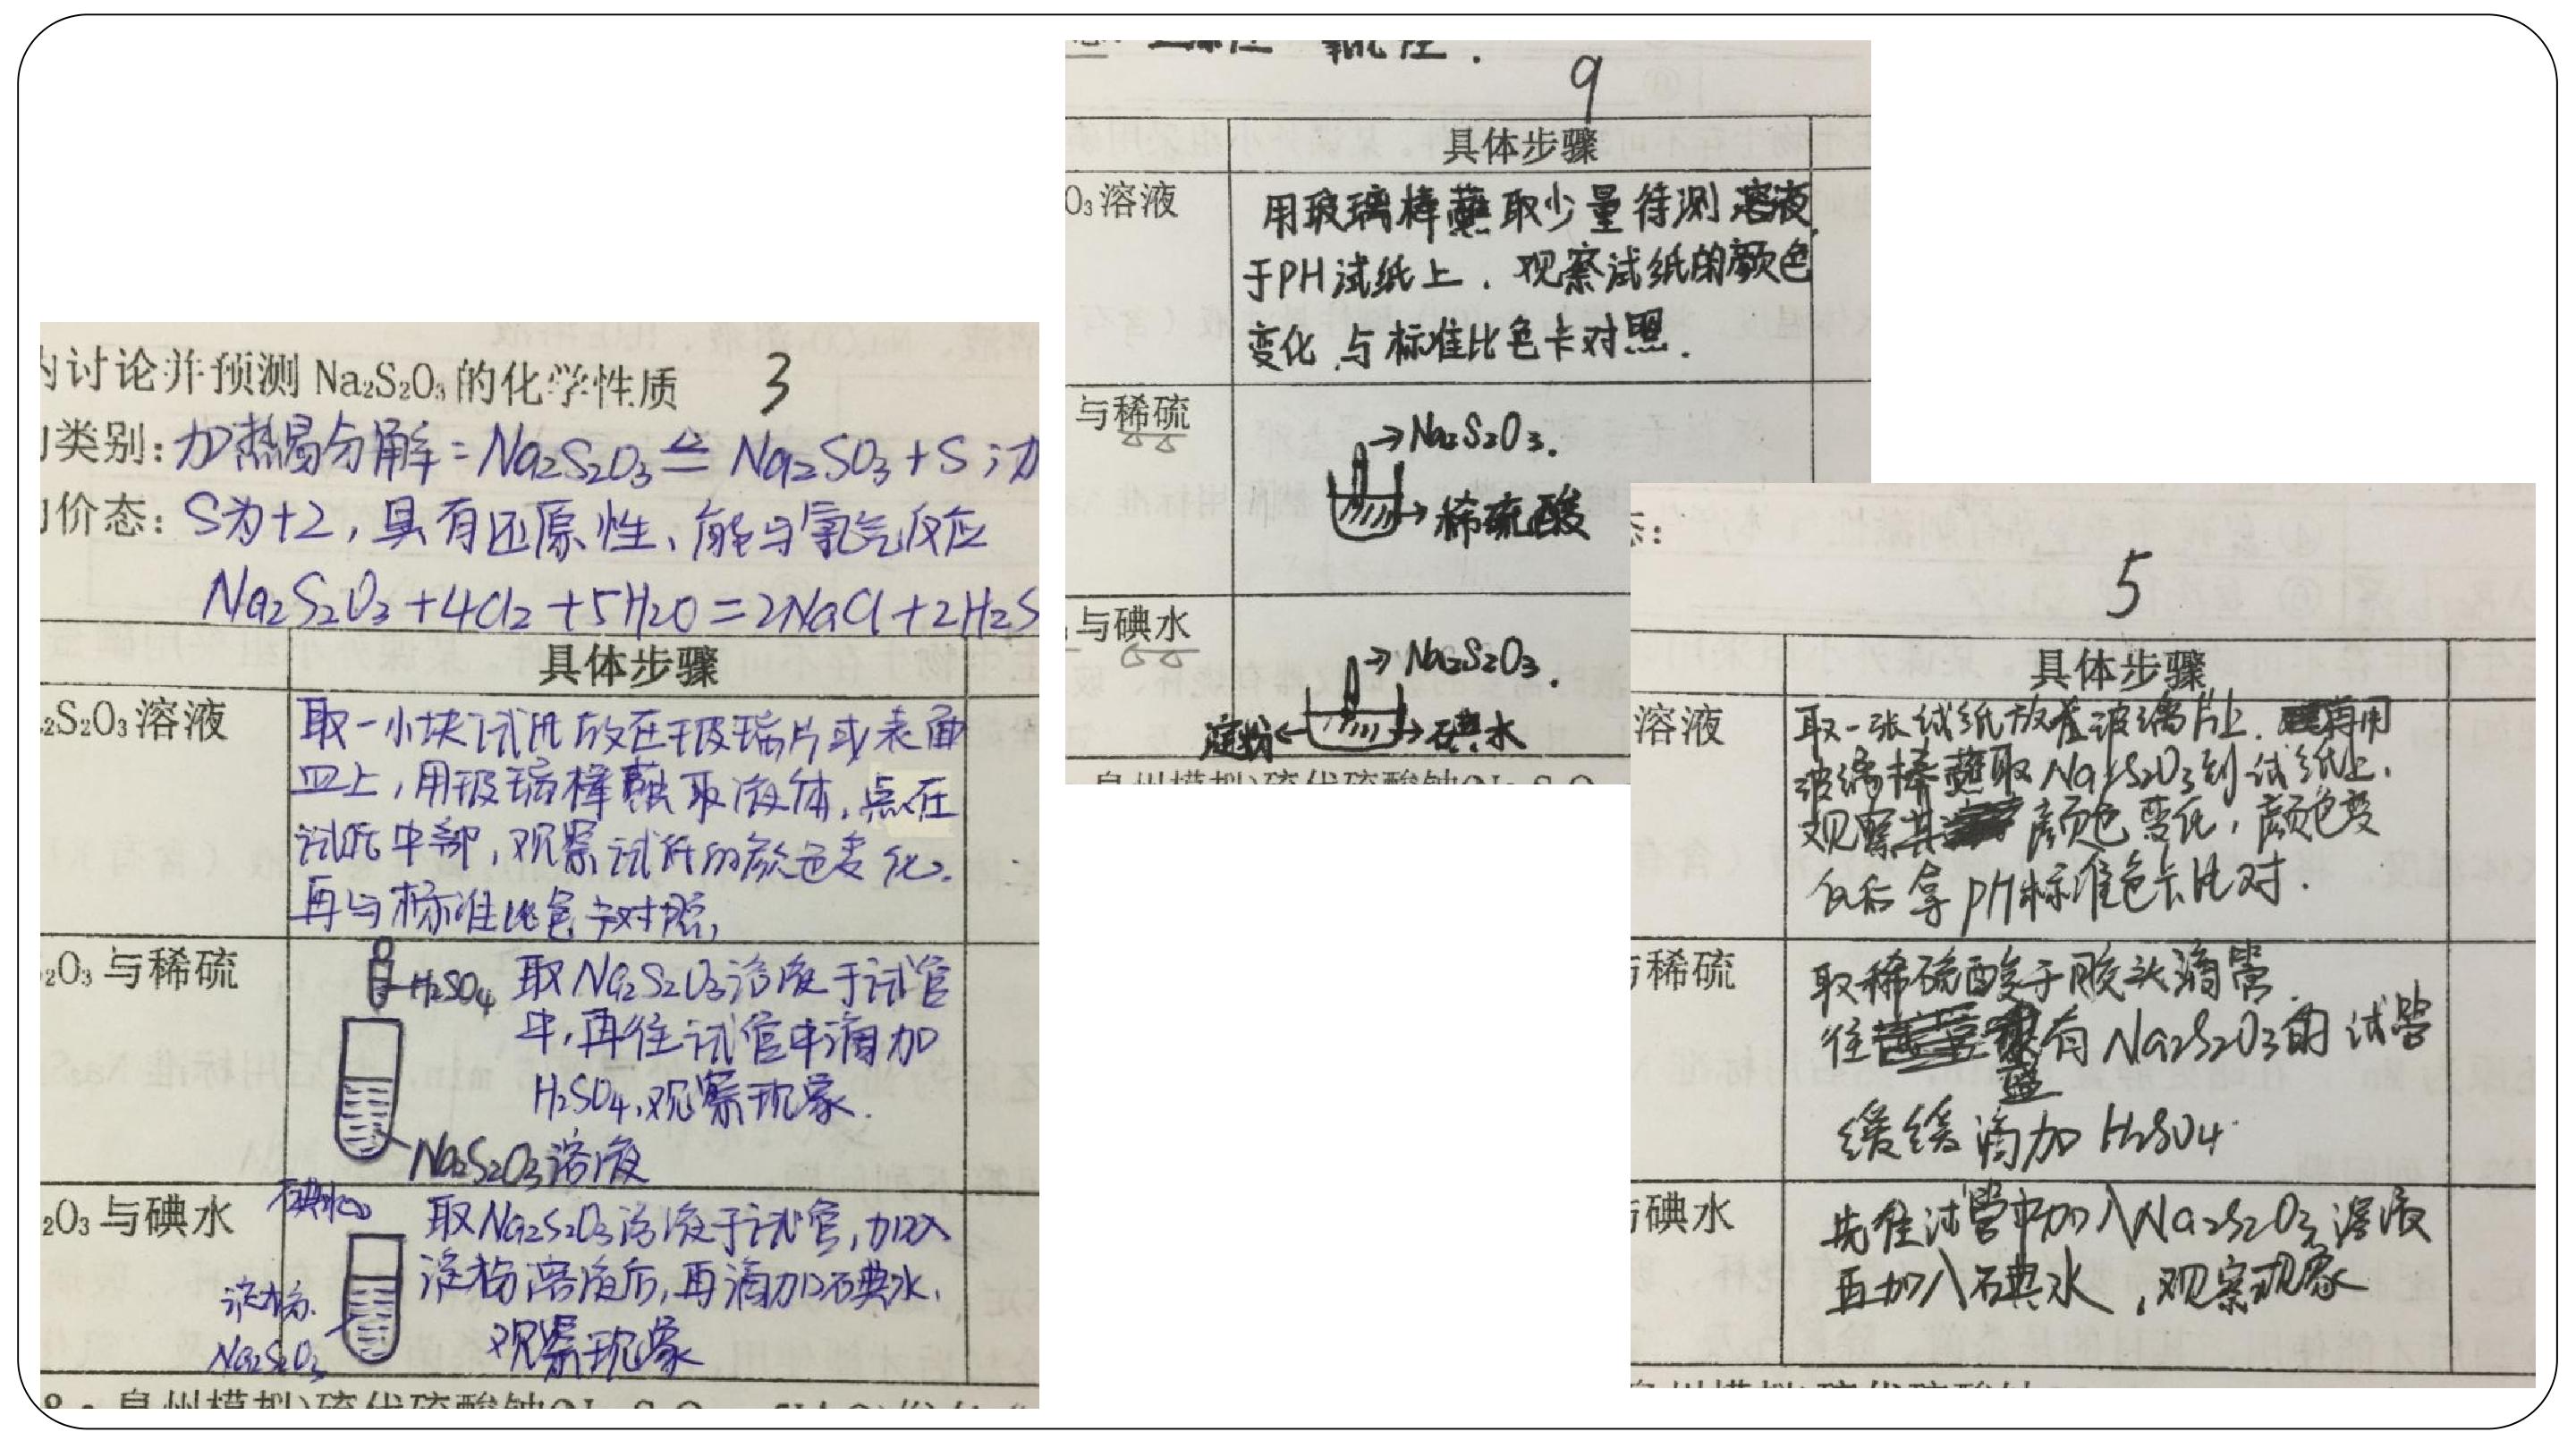 内讨论并预测 Na₂S₂O₃ 的化学性质 3
类别:加热易分解:Na₂S₂O₃ ≜ Na₂SO₃ + S;加
价态:S为+2,具有还原性、能与氯气反应
Na₂S₂O₃ + 4Cl₂ + 5H₂O = 2NaCl + 2H₂S
具体步骤
₂S₂O₃ 溶液
取一小块试纸放在玻璃片或表面
皿上,用玻璃棒蘸取液体,点在
试纸中部,观察试纸的颜色变化。
再与标准比色卡对照,
₂O₃ 与稀硫
H₂SO₄
取Na₂S₂O₃溶液于试管
中,再往试管中滴加
H₂SO₄,观察现象.
Na₂S₂O₃溶液
₂O₃ 与碘水
碘水
取Na₂S₂O₃溶液于试管,加入
淀粉溶液后,再滴加碘水,
观察现象
淀粉.
Na₂S₂O₃
泉州模拟)硫代硫酸钠(Na₂S₂O₃
氧化性.
9
具体步骤
O₃ 溶液
用玻璃棒蘸取少量待测溶液
于PH试纸上.观察试纸的颜色
变化,与标准比色卡对照.
与稀硫
Na₂S₂O₃.
稀硫酸
与碘水
Na₂S₂O₃.
淀粉
碘水
泉州模拟)硫代硫酸钠(Na₂S₂O
态:
5
具体步骤
溶液
取一张试纸放在玻璃片上.再用
玻璃棒蘸取Na₂S₂O₃到试纸上.
观察其颜色变化,颜色变
化后拿PH标准色卡比对.
与稀硫
取稀硫酸于胶头滴管.
往盛有Na₂S₂O₃的试管
缓缓滴加H₂SO₄.
与碘水
先往试管中加入Na₂S₂O₃溶液
再加入碘水,观察现象